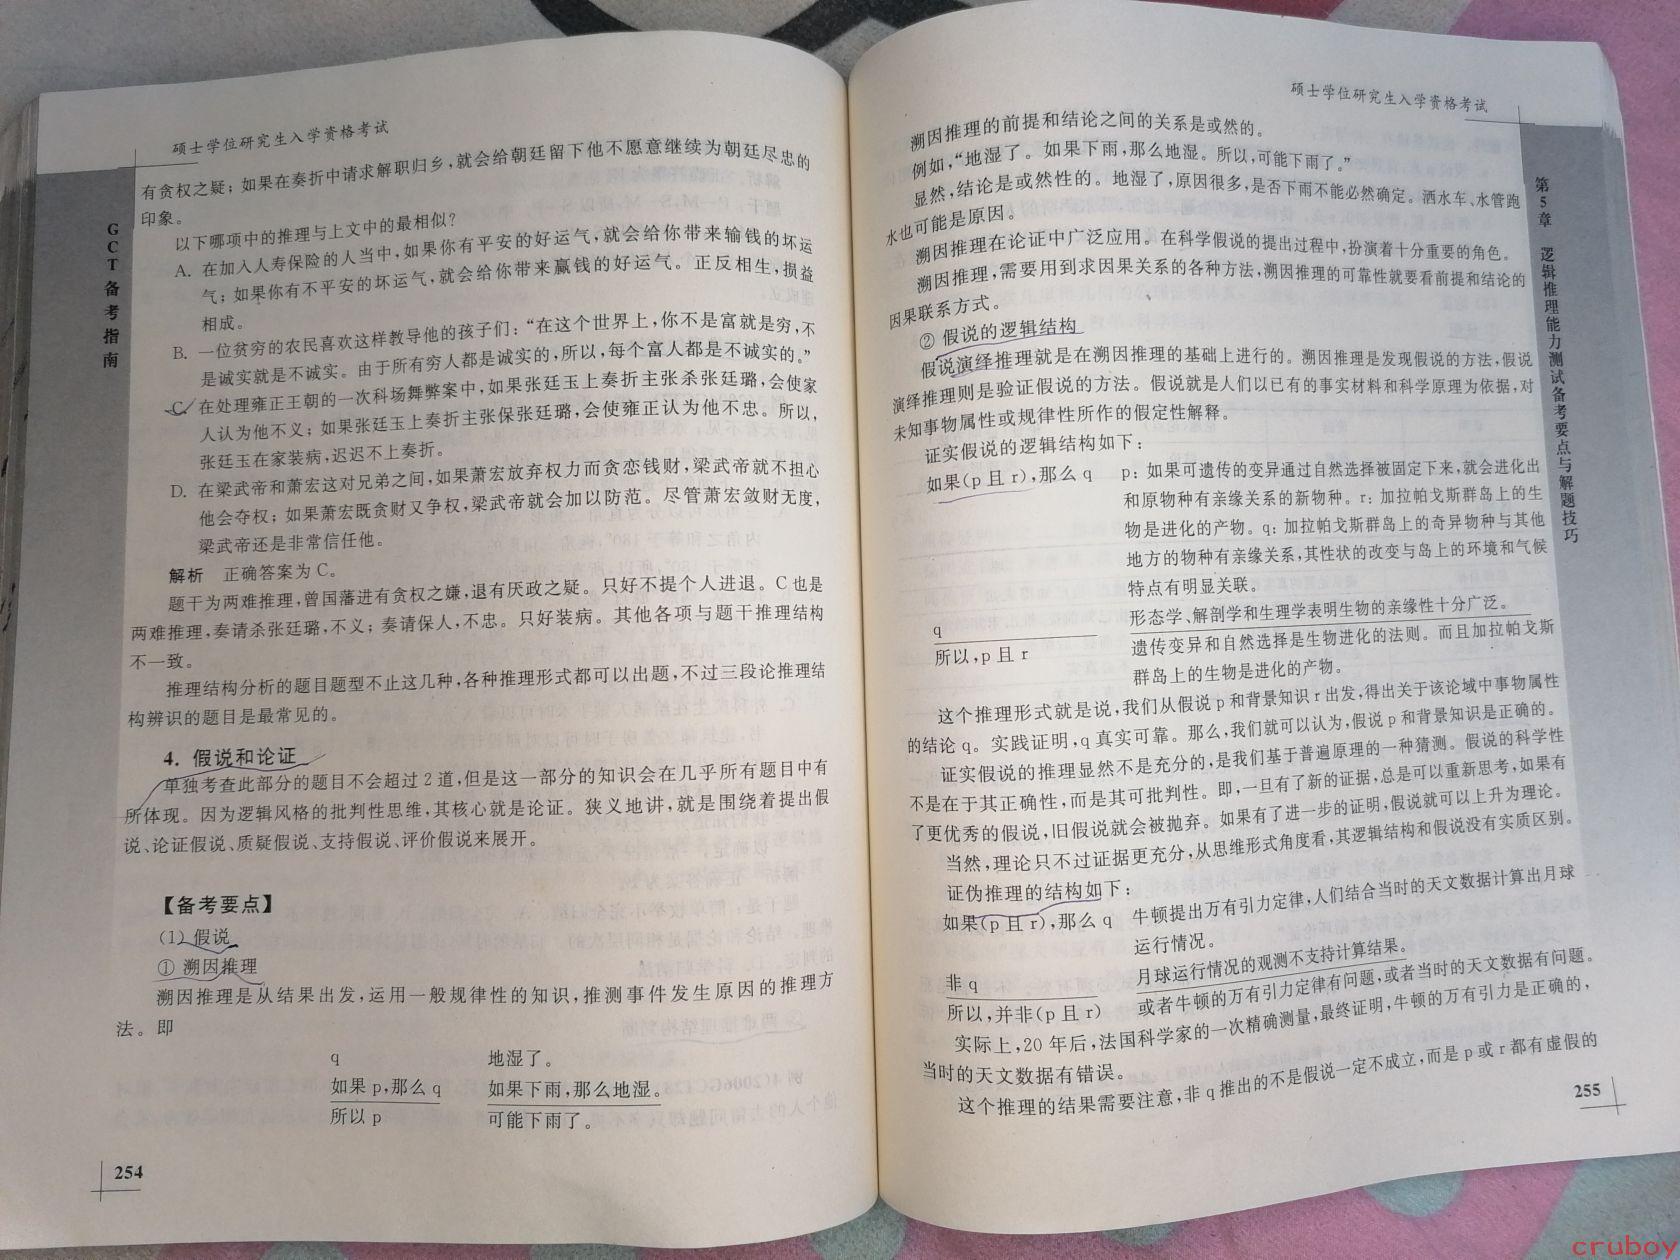 硕士学位研究生入学资格考试
有贪权之疑；如果在奏折中请求解职归乡，就会给朝廷留下他不愿意继续为朝廷尽忠的
印象。
以下哪项中的推理与上文中的最相似？
A. 在加入人寿保险的人当中，如果你有平安的好运气，就会给你带来输钱的坏运
气；如果你有不平安的坏运气，就会给你带来赢钱的好运气。正反相生，损益
相成。
B. 一位贫穷的农民喜欢这样教导他的孩子们：“在这个世界上，你不是富就是穷，不
是诚实就是不诚实。由于所有穷人都是诚实的，所以，每个富人都是不诚实的。”
C. 在处理雍正王朝的一次科场舞弊案中，如果张廷玉上奏折主张杀张廷璐，会使家
人认为他不义；如果张廷玉上奏折主张保张廷璐，会使雍正认为他不忠。所以，
张廷玉在家装病，迟迟不上奏折。
D. 在梁武帝和萧宏这对兄弟之间，如果萧宏放弃权力而贪恋钱财，梁武帝就不担心
他会夺权；如果萧宏既贪财又争权，梁武帝就会加以防范。尽管萧宏敛财无度，
梁武帝还是非常信任他。
解析 正确答案为 C。
题干为两难推理，曾国藩进有贪权之嫌，退有厌政之疑。只好不提个人进退。C 也是
两难推理，奏请杀张廷璐，不义；奏请保人，不忠。只好装病。其他各项与题干推理结构
不一致。
推理结构分析的题目题型不止这几种，各种推理形式都可以出题，不过三段论推理结
构辨识的题目是最常见的。
4. 假说和论证
单独考查此部分的题目不会超过 2 道，但是这一部分的知识会在几乎所有题目中有
所体现。因为逻辑风格的批判性思维，其核心就是论证。狭义地讲，就是围绕着提出假
说、论证假说、质疑假说、支持假说、评价假说来展开。
【备考要点】
(1) 假说
① 溯因推理
溯因推理是从结果出发，运用一般规律性的知识，推测事件发生原因的推理方
法。即
q 地湿了。
如果 p，那么 q 如果下雨，那么地湿。
所以 p 可能下雨了。
254
GCT备考指南
硕士学位研究生入学资格考试
溯因推理的前提和结论之间的关系是或然的。
例如，“地湿了。如果下雨，那么地湿。所以，可能下雨了。”
显然，结论是或然性的。地湿了，原因很多，是否下雨不能必然确定。洒水车、水管跑
水也可能是原因。
溯因推理在论证中广泛应用。在科学假说的提出过程中，扮演着十分重要的角色。
溯因推理，需要用到求因果关系的各种方法，溯因推理的可靠性就要看前提和结论的
因果联系方式。
② 假说的逻辑结构
假说演绎推理就是在溯因推理的基础上进行的。溯因推理是发现假说的方法，假说
演绎推理则是验证假说的方法。假说就是人们以已有的事实材料和科学原理为依据，对
未知事物属性或规律性所作的假定性解释。
证实假说的逻辑结构如下：
如果(p 且 r)，那么 q p：如果可遗传的变异通过自然选择被固定下来，就会进化出
和原物种有亲缘关系的新物种。r：加拉帕戈斯群岛上的生
物是进化的产物。q：加拉帕戈斯群岛上的奇异物种与其他
地方的物种有亲缘关系，其性状的改变与岛上的环境和气候
特点有明显关联。
q 形态学、解剖学和生理学表明生物的亲缘性十分广泛。
所以，p 且 r 遗传变异和自然选择是生物进化的法则。而且加拉帕戈斯
群岛上的生物是进化的产物。
这个推理形式就是说，我们从假说 p 和背景知识 r 出发，得出关于该论域中事物属性
的结论 q。实践证明，q 真实可靠。那么，我们就可以认为，假说 p 和背景知识是正确的。
证实假说的推理显然不是充分的，是我们基于普遍原理的一种猜测。假说的科学性
不是在于其正确性，而是其可批判性。即，一旦有了新的证据，总是可以重新思考，如果有
了更优秀的假说，旧假说就会被抛弃。如果有了进一步的证明，假说就可以上升为理论。
当然，理论只不过证据更充分，从思维形式角度看，其逻辑结构和假说没有实质区别。
证伪推理的结构如下：
如果(p 且 r)，那么 q 牛顿提出万有引力定律，人们结合当时的天文数据计算出月球
运行情况。
非 q 月球运行情况的观测不支持计算结果。
所以，并非(p 且 r) 或者牛顿的万有引力定律有问题，或者当时的天文数据有问题。
实际上，20 年后，法国科学家的一次精确测量，最终证明，牛顿的万有引力是正确的，
当时的天文数据有错误。
这个推理的结果需要注意，非 q 推出的不是假说一定不成立，而是 p 或 r 都有虚假的
255
第5章 逻辑推理能力测试备考要点与解题技巧
cruboy